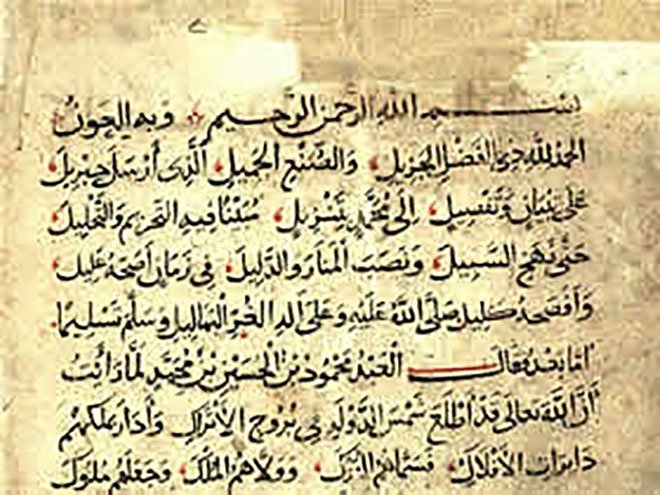 بسم الله الرحمن الرحيم وبه العون
الحمد لله ذي الفضل الجزيل والصنع الجميل الذي أرسل جبريل
على بيان وتفصيل إلى محمد بتنزيل فيه التحريم والتحليل
حتى نهج السبيل ونصب المنار والدليل في زمان أصحه عليل
وأفصحه كليل صلى الله عليه وعلى آله الغر البهاليل وسلم تسليما
أما بعد فقال العبد محمود بن الحسين بن محمد لما رأيت
أن الله تعالى قد أطلع شمس الدولة في بروج الأتراك وأدار بملكهم
دايرات الأفلاك فسماهم الترك وولاهم الملك وجعلهم ملوك